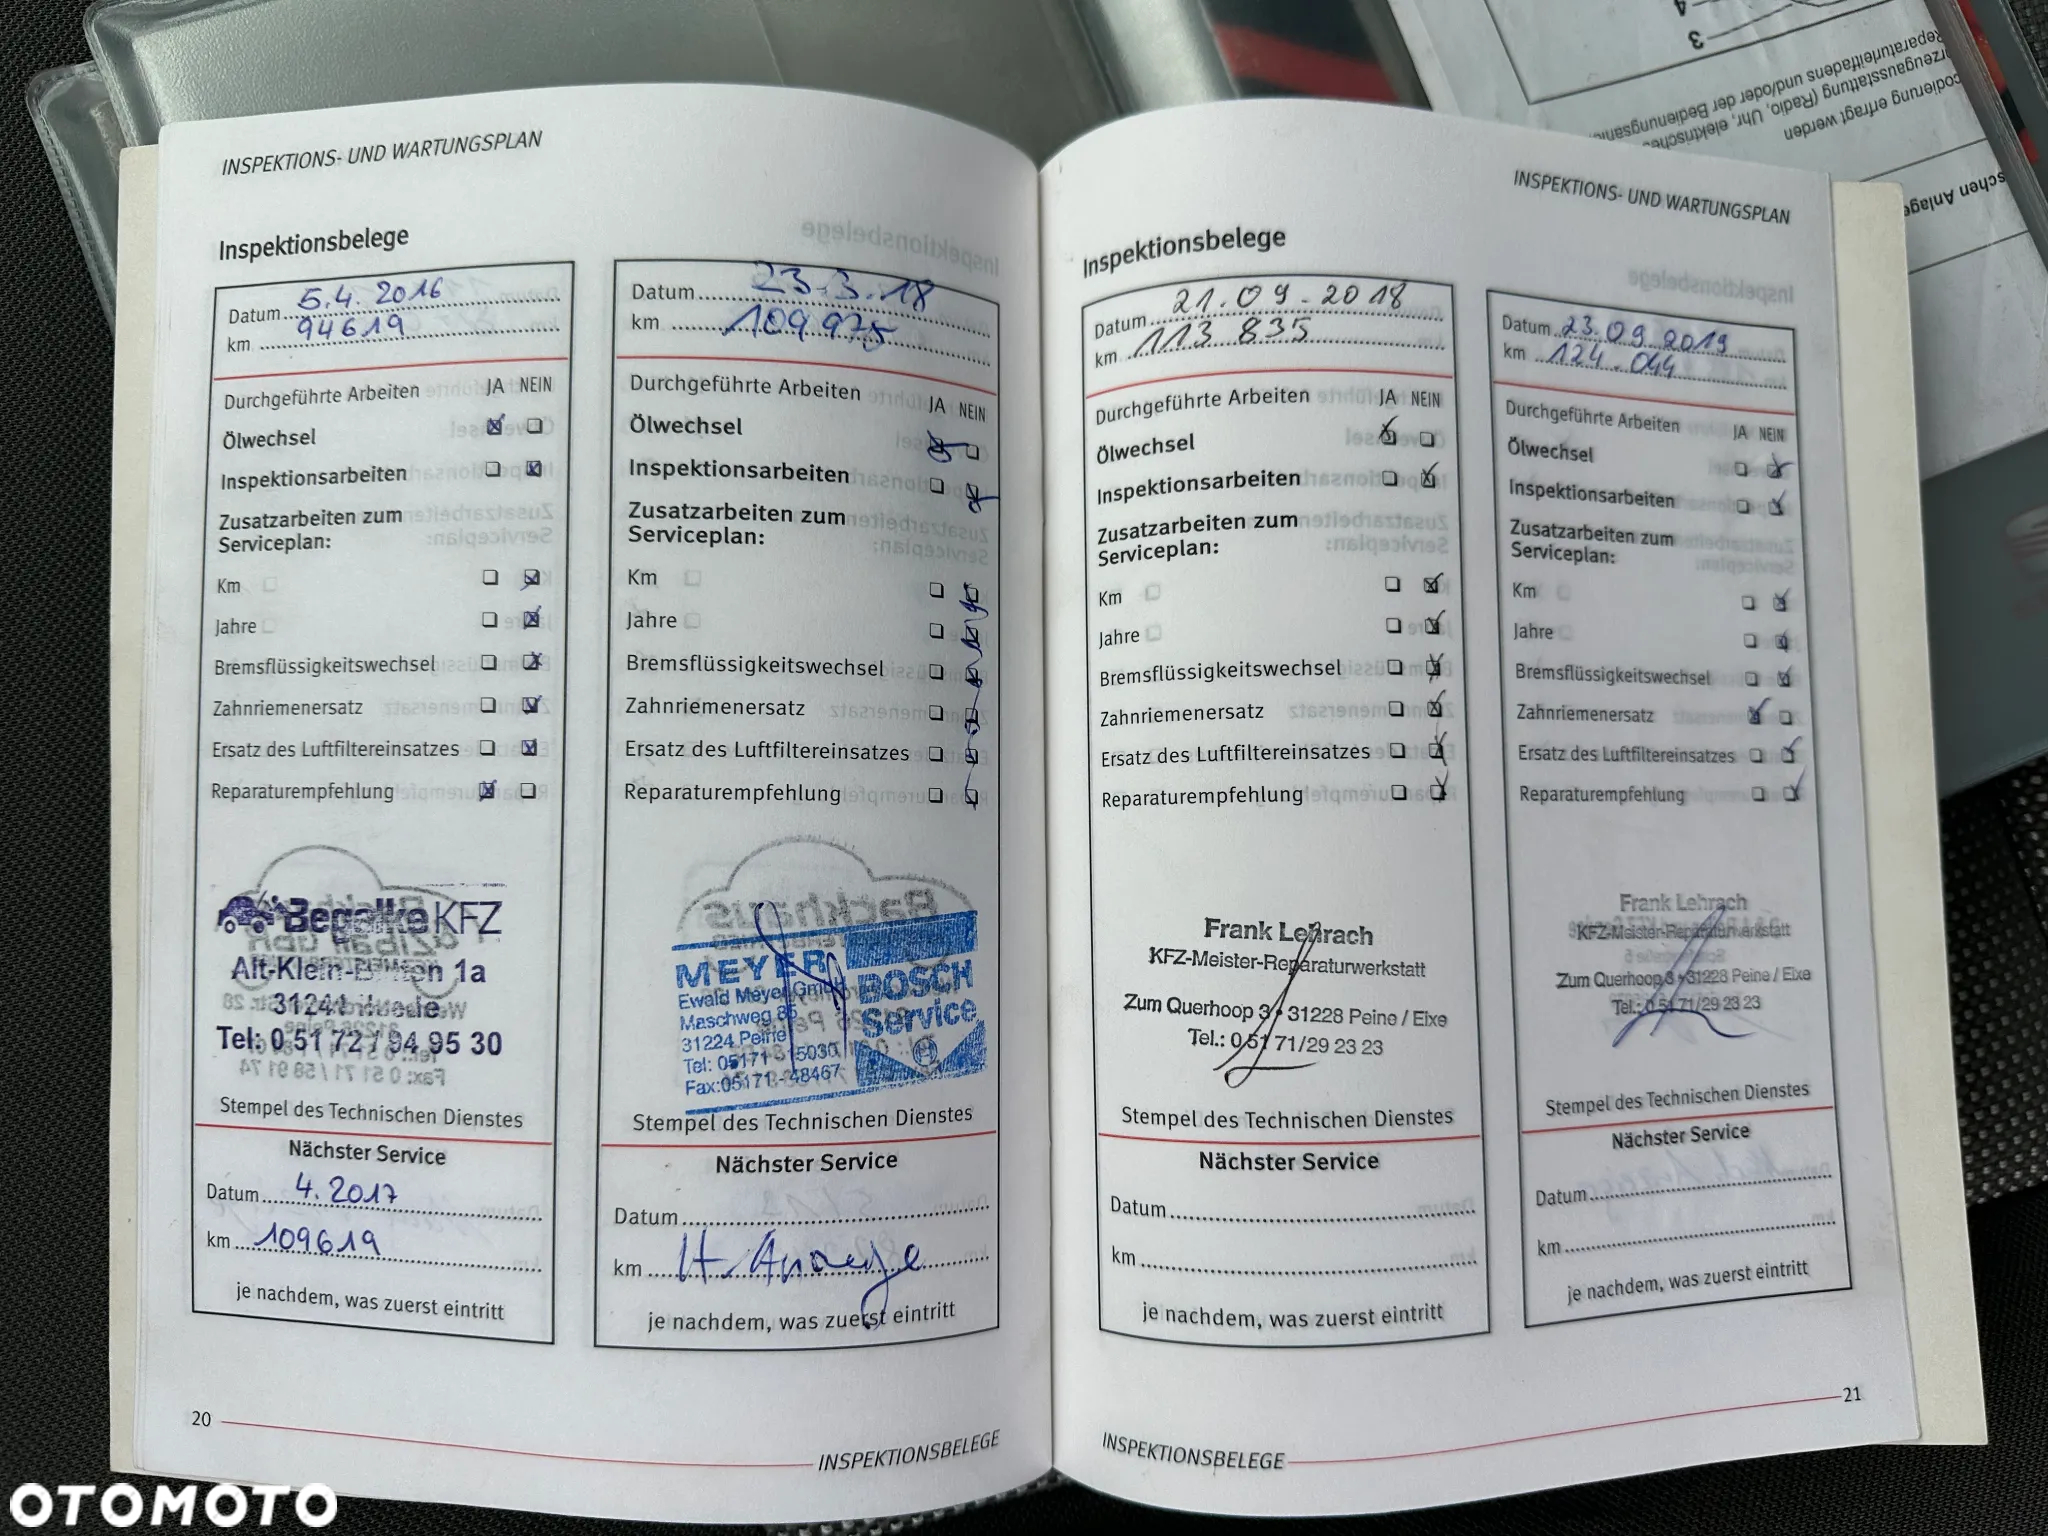 INSPEKTIONS- UND WARTUNGSPLAN
Inspektionsbelege
Datum 5.4.2016
km 94619
Durchgeführte Arbeiten JA NEIN
Ölwechsel
Inspektionsarbeiten
Zusatzarbeiten zum
Serviceplan:
Km
Jahre
Bremsflüssigkeitswechsel
Zahnriemenersatz
Ersatz des Luftfiltereinsatzes
Reparaturempfehlung
Begalke KFZ
Alt-Klein- 1a
31241
Tel: 0 51 72 / 94 95 30
Stempel des Technischen Dienstes
Nächster Service
Datum 4.2017
km 109619
je nachdem, was zuerst eintritt
Datum 23.3.18
km 109.975
Durchgeführte Arbeiten JA NEIN
Ölwechsel
Inspektionsarbeiten
Zusatzarbeiten zum
Serviceplan:
Km
Jahre
Bremsflüssigkeitswechsel
Zahnriemenersatz
Ersatz des Luftfiltereinsatzes
Reparaturempfehlung
MEYER
Ewald Meyer GmbH
Maschweg 85
31224 Peine
Tel: 05171 - 15030
Fax:05171 - 48467
BOSCH
Service
Stempel des Technischen Dienstes
Nächster Service
Datum
km
je nachdem, was zuerst eintritt
20
INSPEKTIONSBELEGE
INSPEKTIONS- UND WARTUNGSPLAN
Inspektionsbelege
Datum 21.09.2018
km 113 835
Durchgeführte Arbeiten JA NEIN
Ölwechsel
Inspektionsarbeiten
Zusatzarbeiten zum
Serviceplan:
Km
Jahre
Bremsflüssigkeitswechsel
Zahnriemenersatz
Ersatz des Luftfiltereinsatzes
Reparaturempfehlung
Frank Lehrach
KFZ-Meister-Reparaturwerkstatt
Zum Querhoop 3 • 31228 Peine / Eixe
Tel.: 0 51 71/29 23 23
Stempel des Technischen Dienstes
Nächster Service
Datum
km
je nachdem, was zuerst eintritt
Datum 23.09.2019
km 124.044
Durchgeführte Arbeiten JA NEIN
Ölwechsel
Inspektionsarbeiten
Zusatzarbeiten zum
Serviceplan:
Km
Jahre
Bremsflüssigkeitswechsel
Zahnriemenersatz
Ersatz des Luftfiltereinsatzes
Reparaturempfehlung
Frank Lehrach
KFZ-Meister-Reparaturwerkstatt
Zum Querhoop 3 • 31228 Peine / Eixe
Tel.: 0 51 71/29 23 23
Stempel des Technischen Dienstes
Nächster Service
Datum
km
je nachdem, was zuerst eintritt
21
INSPEKTIONSBELEGE
OTOMOTO